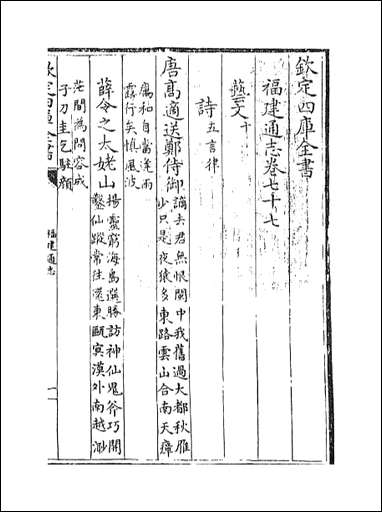 欽定四庫全書
福建通志卷七十七
藝文十
詩五言律
唐高適送鄭侍御
謫去君無恨閩中我舊過大都秋雁
少只是夜猿多東路雲山合南天瘴
癘和自當逢雨
露行矣慎風波
薛令之太姥山
揚靈窮海島選勝訪神仙鬼斧巧開
鑿仙蹤常往還東甌冥漠外南越渺
茫間為問容成
子刀圭乞駐顏
欽定四庫全書
福建通志
一